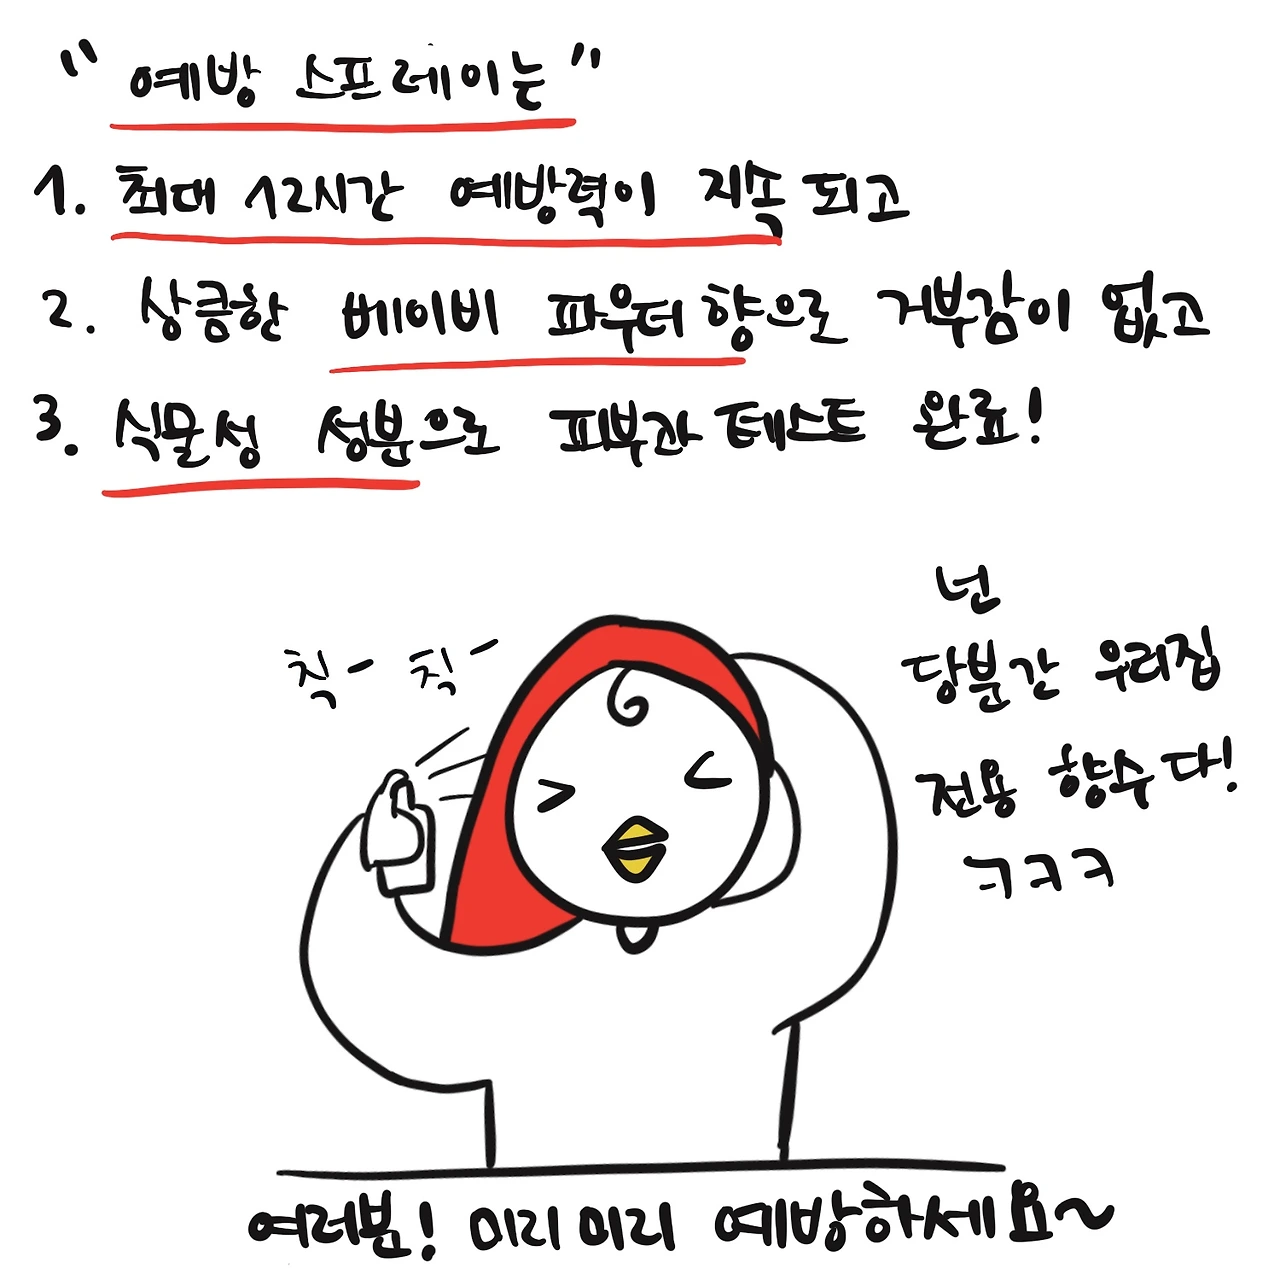 "예방 스프레이는"
1. 최대 12시간 예방력이 지속되고
2. 상큼한 베이비 파우더 향으로 거부감이 없고
3. 식물성 성분으로 피부과 테스트 완료!
칙- 칙-
넌
당분간 우리집
전용 향수다!
ㅋㅋㅋ
여러분! 미리미리 예방하세요~